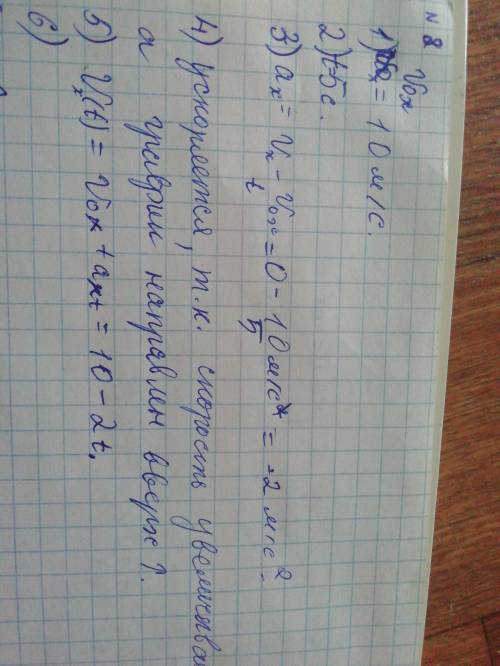 № 8
1) V₀ₓ = 10 м/с.
2) t=5с.
3) aₓ = Vₓ - V₀ₓ / t = 0 - 10 м/с / 5 = -2 м/с².
4) ускоряется, т.к. скорость увеличива
а график направлен вверх↑.
5) Vₓ(t) = V₀ₓ + aₓt = 10 - 2t.
6)